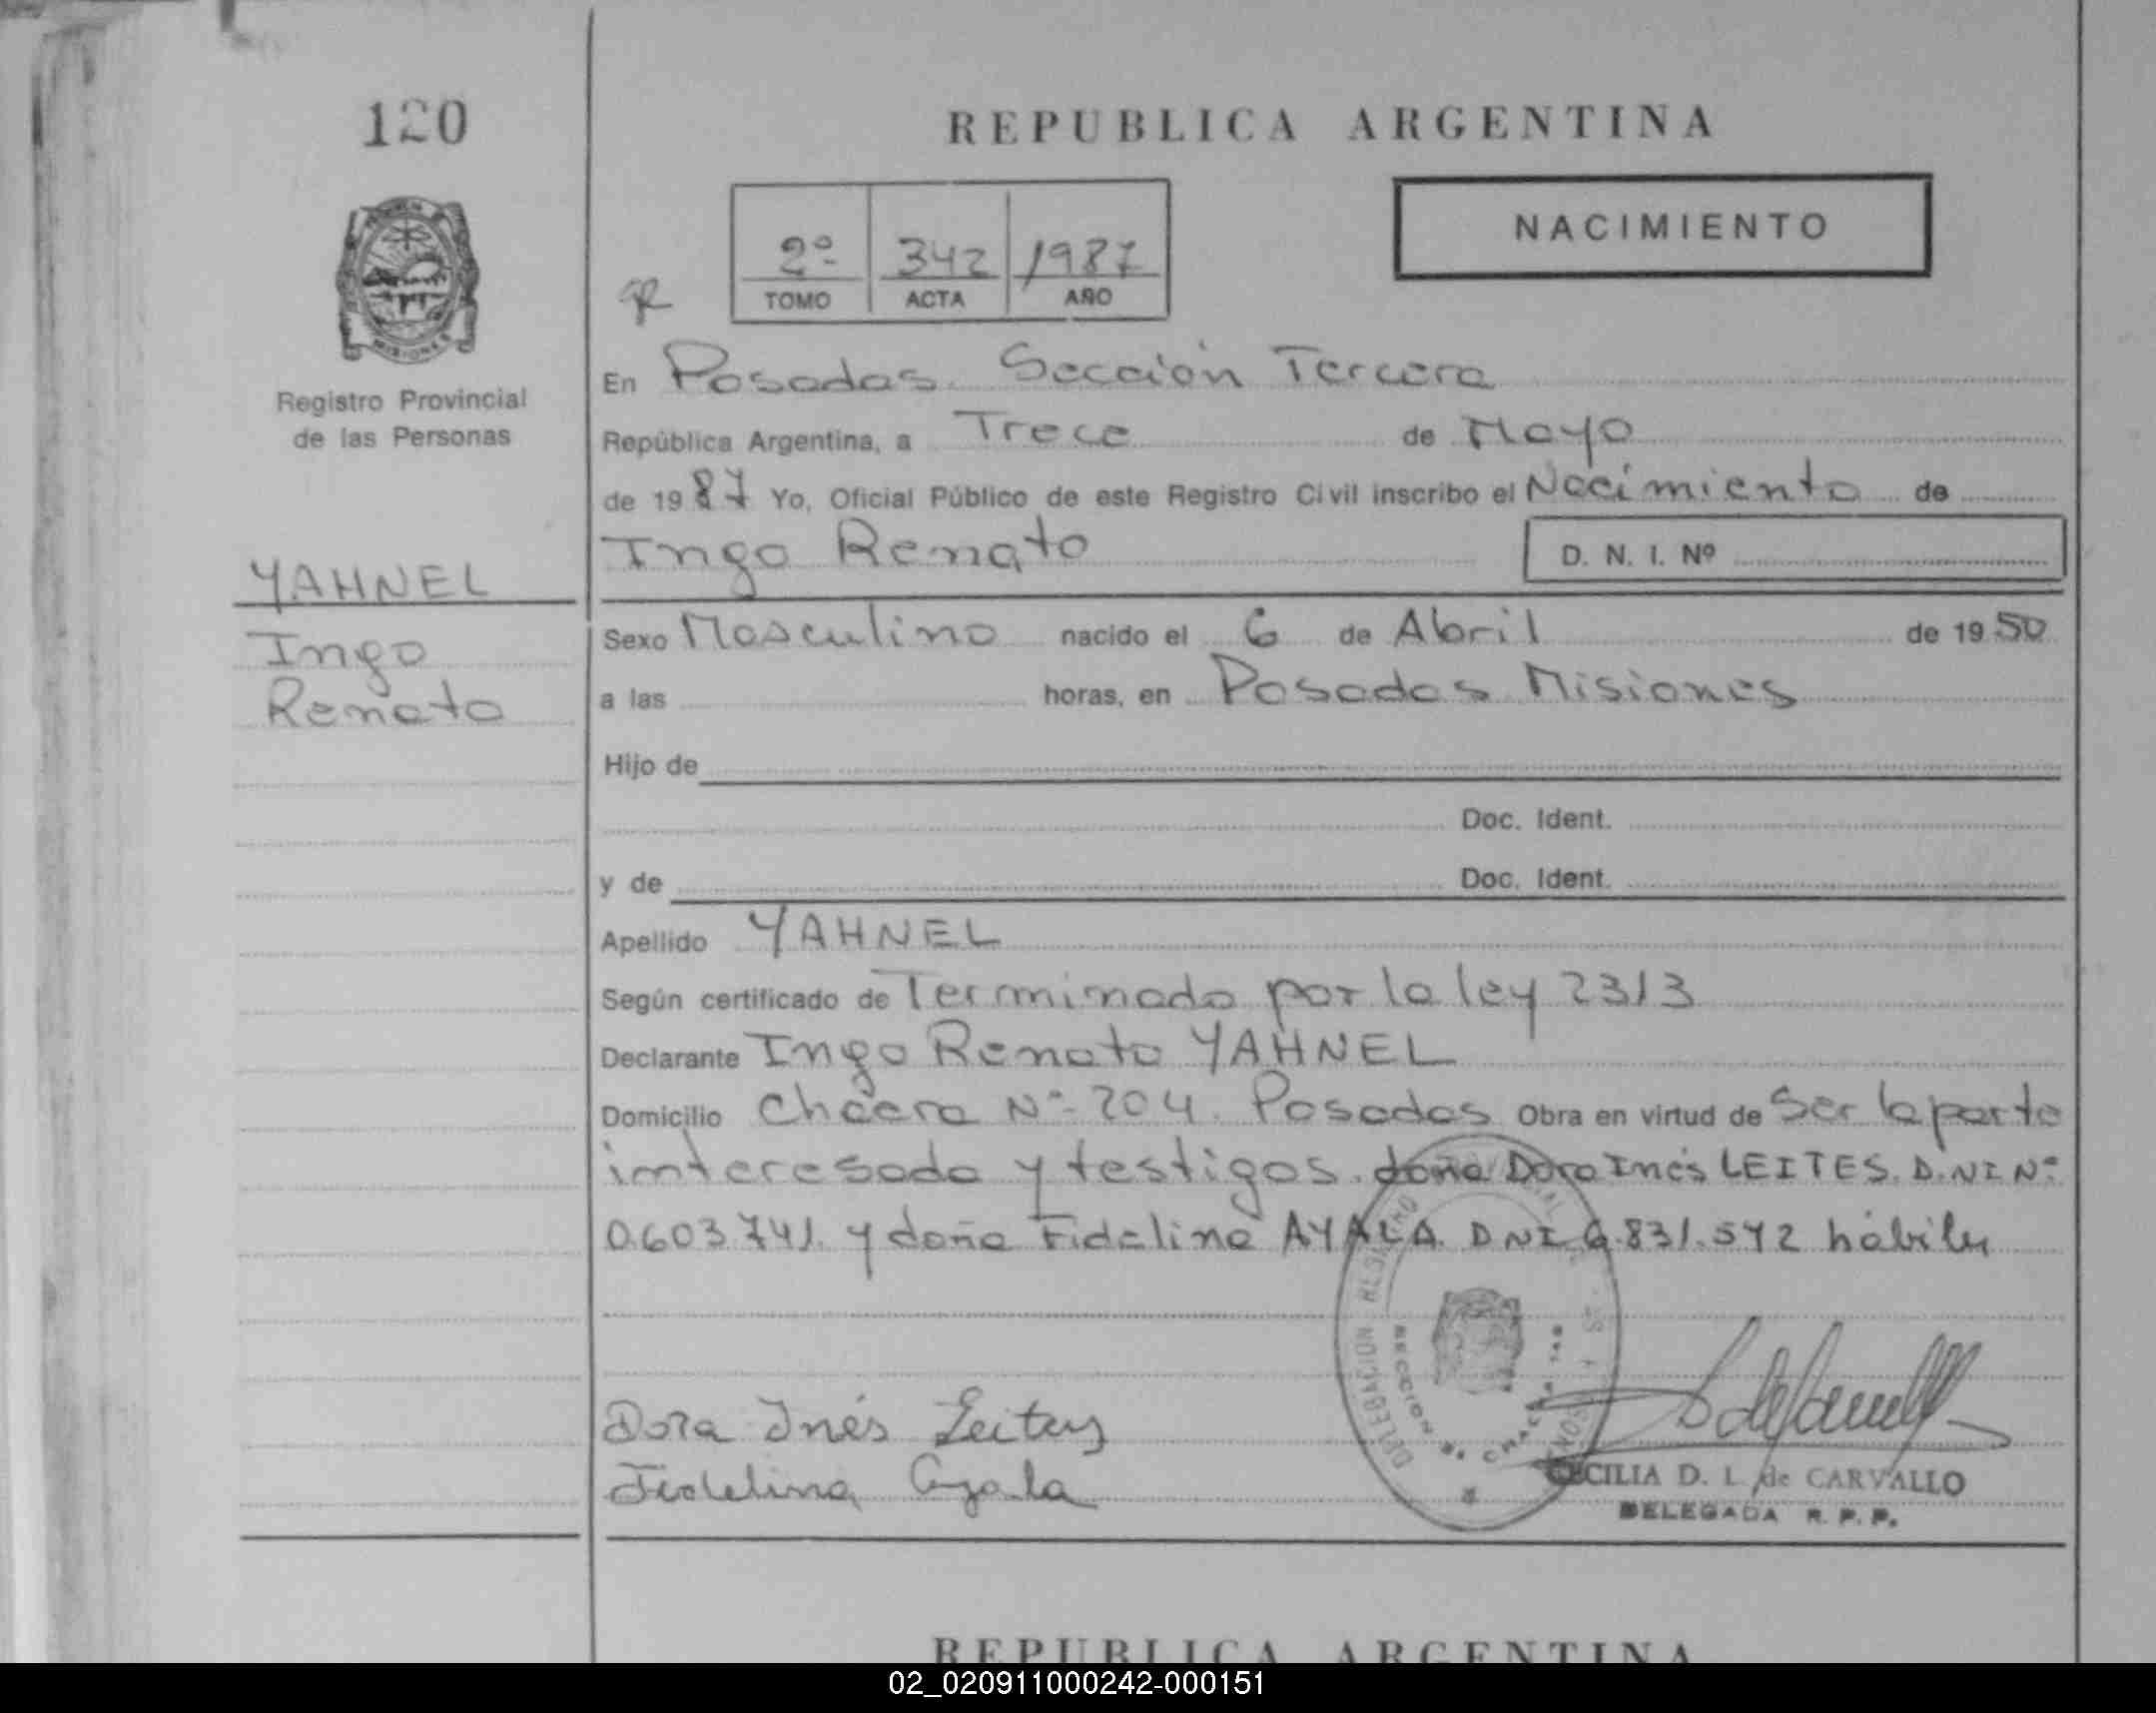 120
REPUBLICA ARGENTINA
NACIMIENTO
2º 342 1987
TOMO ACTA AÑO
MISIONES
Registro Provincial
de las Personas
En Posadas Sección Tercera
República Argentina, a Trece de Mayo
de 1987 Yo, Oficial Público de este Registro Civil inscribo el Nacimiento de
Ingo Renato D. N. I. Nº
YAHNEL
Ingo
Renato
Sexo Masculino nacido el 6 de Abril de 1950
a las horas, en Posadas Misiones
Hijo de
Doc. Ident.
y de Doc. Ident.
Apellido YAHNEL
Según certificado de Terminado por la ley 2313
Declarante Ingo Renato YAHNEL
Domicilio Chacra Nº 204. Posadas Obra en virtud de Ser la parte
interesada y testigos. doña Dora Inés LEITES. D.NI Nº
0.603.741. y doña Fidelina AYALA. DNI 6.831.572 hábiles
DELEGACION REGISTRO
SECCION CHACRA
Dora Inés Leites
Fidelina Ayala
CECILIA D. L. de CARVALLO
DELEGADA R. P. P.
REPUBLICA ARGENTINA
02_020911000242-000151